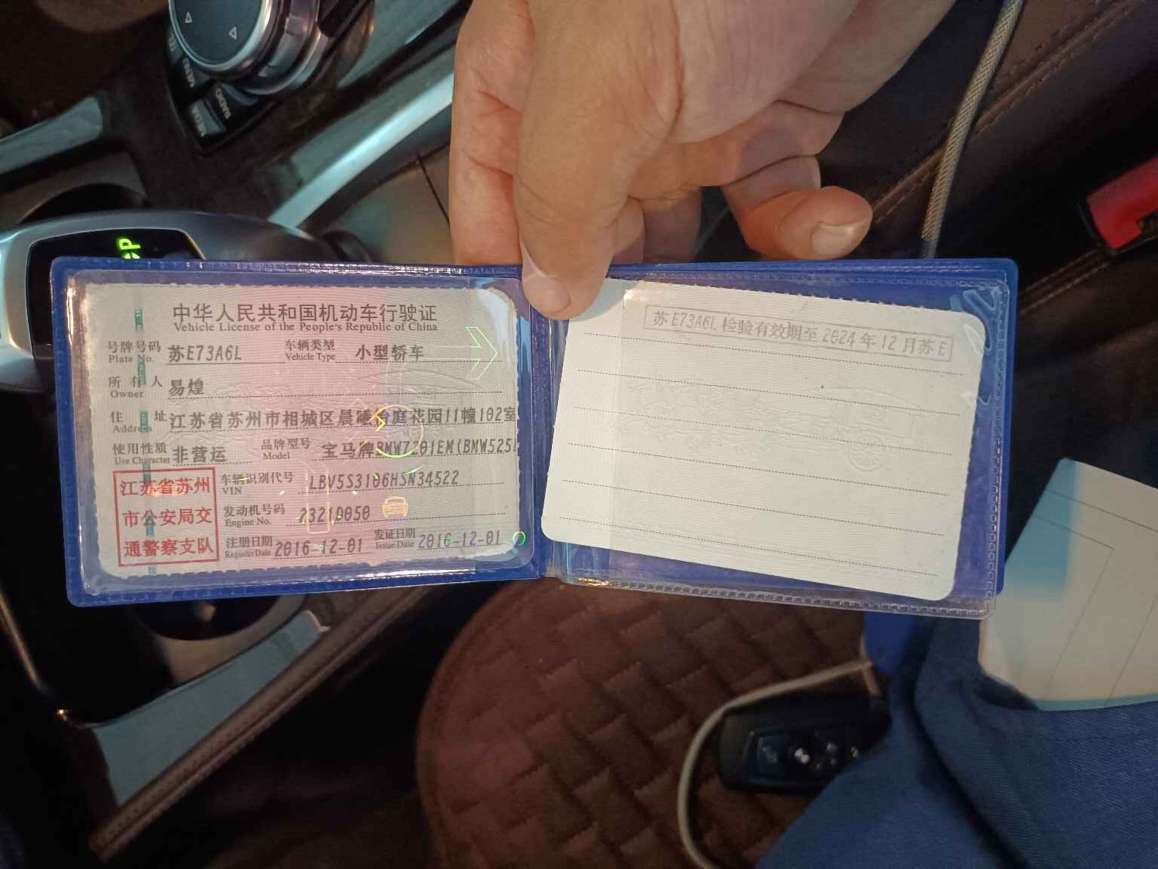 中华人民共和国机动车行驶证
Vehicle License of the People's Republic of China
号牌号码 苏E73A6L 车辆类型 小型轿车
Plate No. Vehicle Type
所有人 易煌
Owner
住址 江苏省苏州市相城区晨曦 庭花园11幢102室
Address
使用性质 非营运 品牌型号 宝马牌BMW7201EM(BMW525
Use Character Model
江苏省苏州
市公安局交
通警察支队
车辆识别代号 LBV5S3106HSN34522
VIN
发动机号码 2321D050
Engine No.
注册日期 2016-12-01 发证日期 2016-12-01
Register Date Issue Date
苏E73A6L 检验有效期至 2024年12月苏E
P